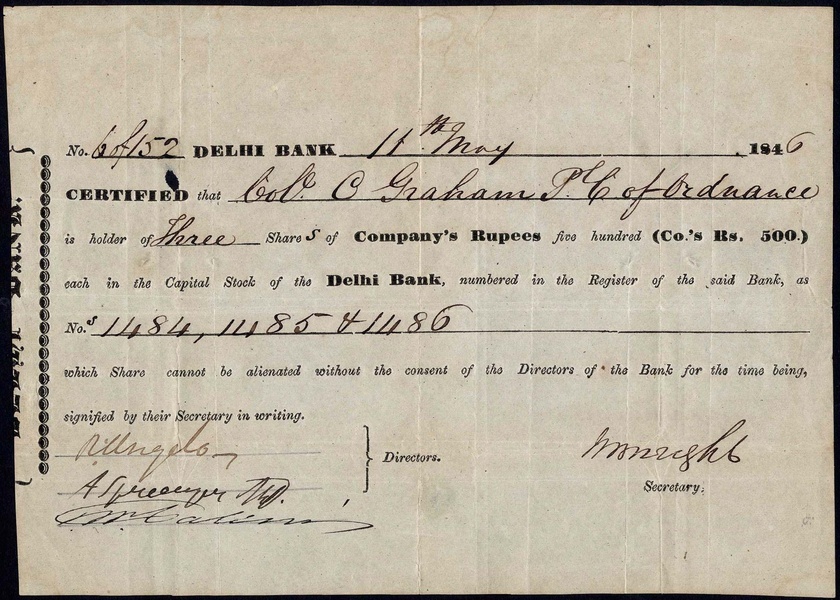 No. 6 of 152 DELHI BANK 11th May 1846
CERTIFIED that Col. C Graham P.l C of Ordnance
is holder of Three Shares of Company's Rupees five hundred (Co.'s Rs. 500.)
each in the Capital Stock of the Delhi Bank, numbered in the Register of the said Bank, as
No.s 1484, 1485 & 1486
which Share cannot be alienated without the consent of the Directors of the Bank for the time being,
signified by their Secretary in writing.
RAngelo
Directors.
Secretary.